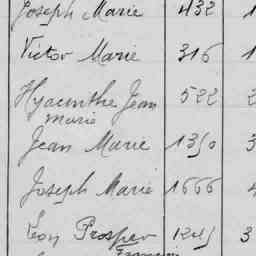 Joseph Marie 432 1
Victor Marie 316 1
Hyacinthe Jean 522 2
Marie
Jean Marie 1350 3
Joseph Marie 1666 4
Léon Prosper 1245 3
François